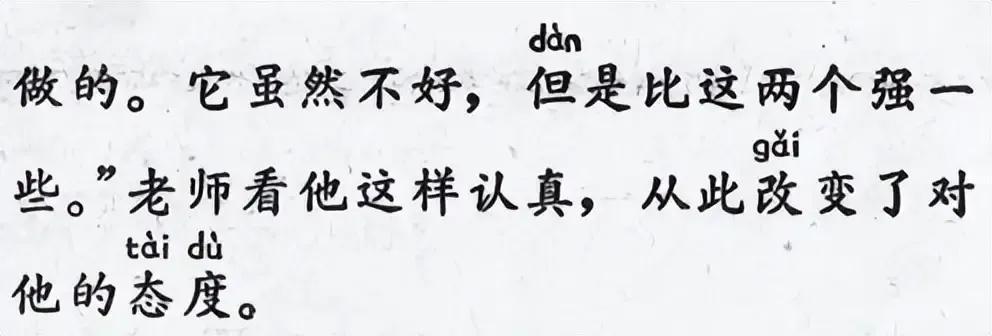 dàn
做的。它虽然不好，但是比这两个强一
gǎi
些。”老师看他这样认真，从此改变了对
tài dù
他的态度。